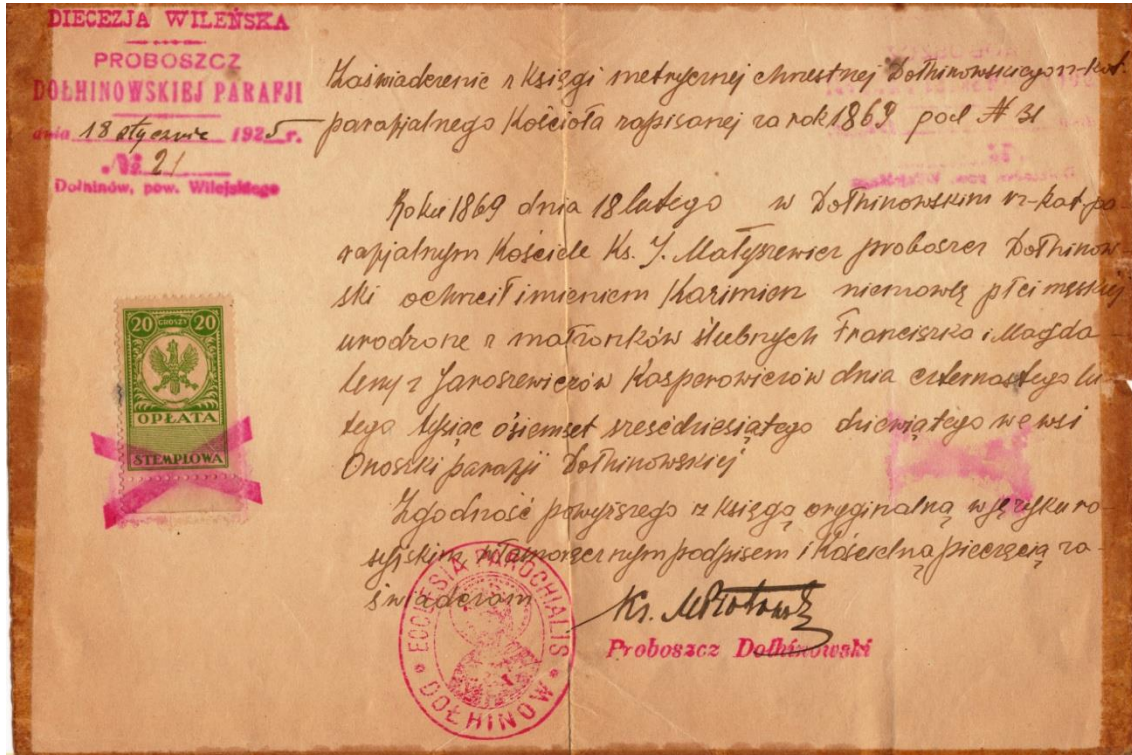 DIECEZJA WILEŃSKA
PROBOSZCZ
DOŁHINOWSKIEJ PARAFJI
dnia 18 stycznia 1925 r.
№ 21
Dołhinów, pow. Wilejskiego
Zaświadczenie z Księgi metrycznej chrestnej Dołhinowskiego rz-kat.
parafjalnego Kościoła zapisanej za rok 1869 pod # 31
Roku 1869 dnia 18 lutego w Dołhinowskim rz-kat. pa-
rafjalnym Kościele Ks. J. Małyszewicz proboszcz Dołhinow-
ski ochrcił imieniem Kazimierz niemowlę płci męskiej
urodzone z małżonków ślubnych Franciszka i Magda-
leny z Jaroszewiczów Kasperowiczów dnia czternastego lu-
tego tysiąc ośiemset sześćdziesiątego dziewiątego we wsi
Onoszki parafji Dołhinowskiej
Zgodność powyższego z księgą oryginalną w języku ro-
syjskim własnoręcznym podpisem i Kościelną pieczęcią za-
świadczam
Ks.
Proboszcz Dołhinowski
20 GROSZY 20
OPŁATA
STEMPLOWA
ECCLESIA PAROCHIALIS
DOŁHINÓW